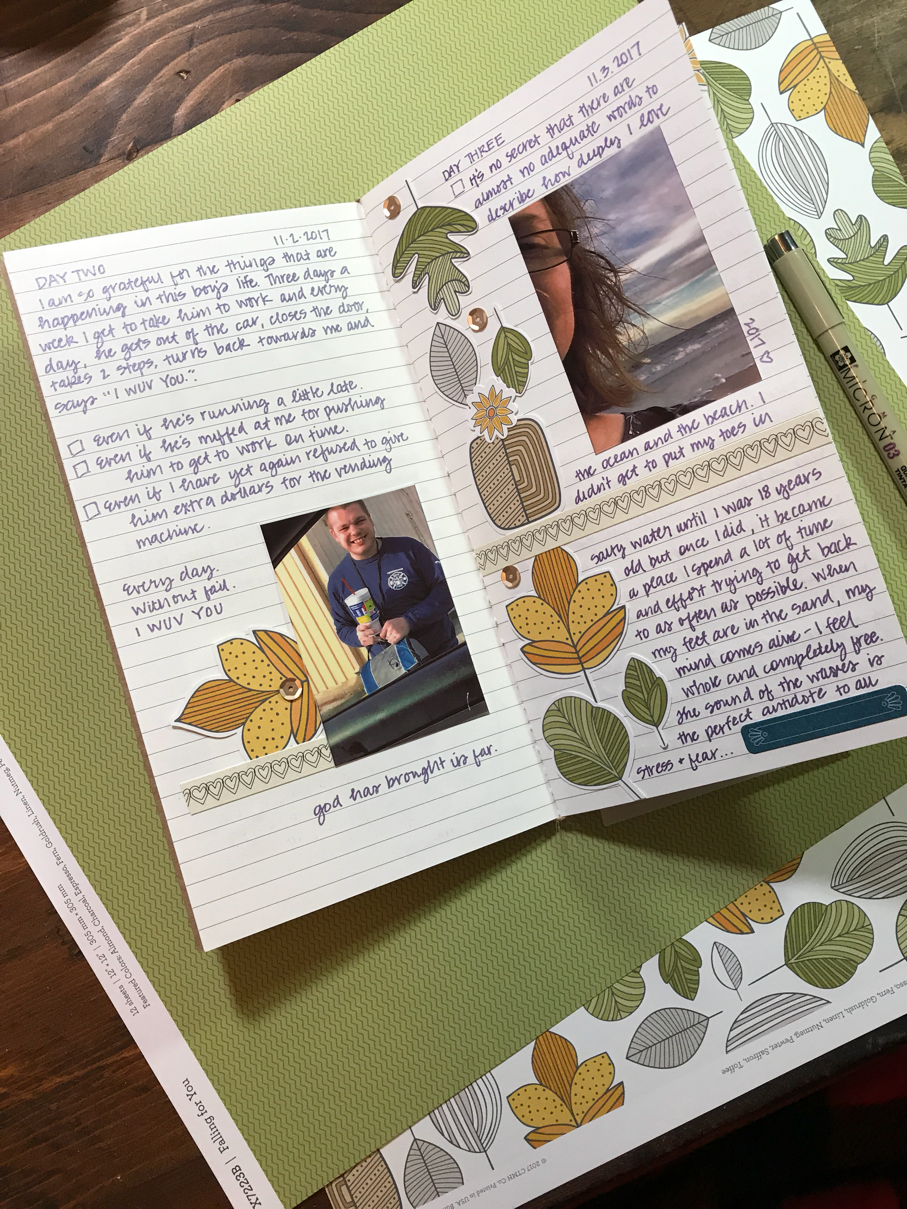 11-2-2017
DAY TWO
I am so grateful for the things that are
happening in this boy's life. Three days a
week I get to take him to work and every
day, he gets out of the car, closes the door,
takes 2 steps, turns back towards me and
says "I WUV YOU".
Even if he's running a little late.
Even if he's miffed at me for pushing
him to get to work on time.
Even if I have yet again refused to give
him extra dollars for the vending
machine.
Every day.
Without fail.
I WUV YOU
god has brought is far.
11.3.2017
DAY THREE
it's no secret that there are
almost no adequate words to
describe how deeply I love
2017 ♡
the ocean and the beach. I
didn't get to put my toes in
salty water until I was 18 years
old but once I did, it became
a peace I spend a lot of time
and effort trying to get back
to as often as possible. When
my feet are in the sand, my
mind comes alive - I feel
whole and completely free.
The sound of the waves is
the perfect antidote to all
stress + fear...
MICRON 03
X7223B | Falling for You
12 sheets | 12" × 12" | 305 mm × 305 mm
Featured Colors: Almond, Charcoal, Espresso, Fern, Goldrush, Linen, Nutmeg, Pe
sso, Fern, Goldrush, Linen, Nutmeg, Pewter, Saffron, Toffee
© 2017 CTMH Co. Printed in USA.